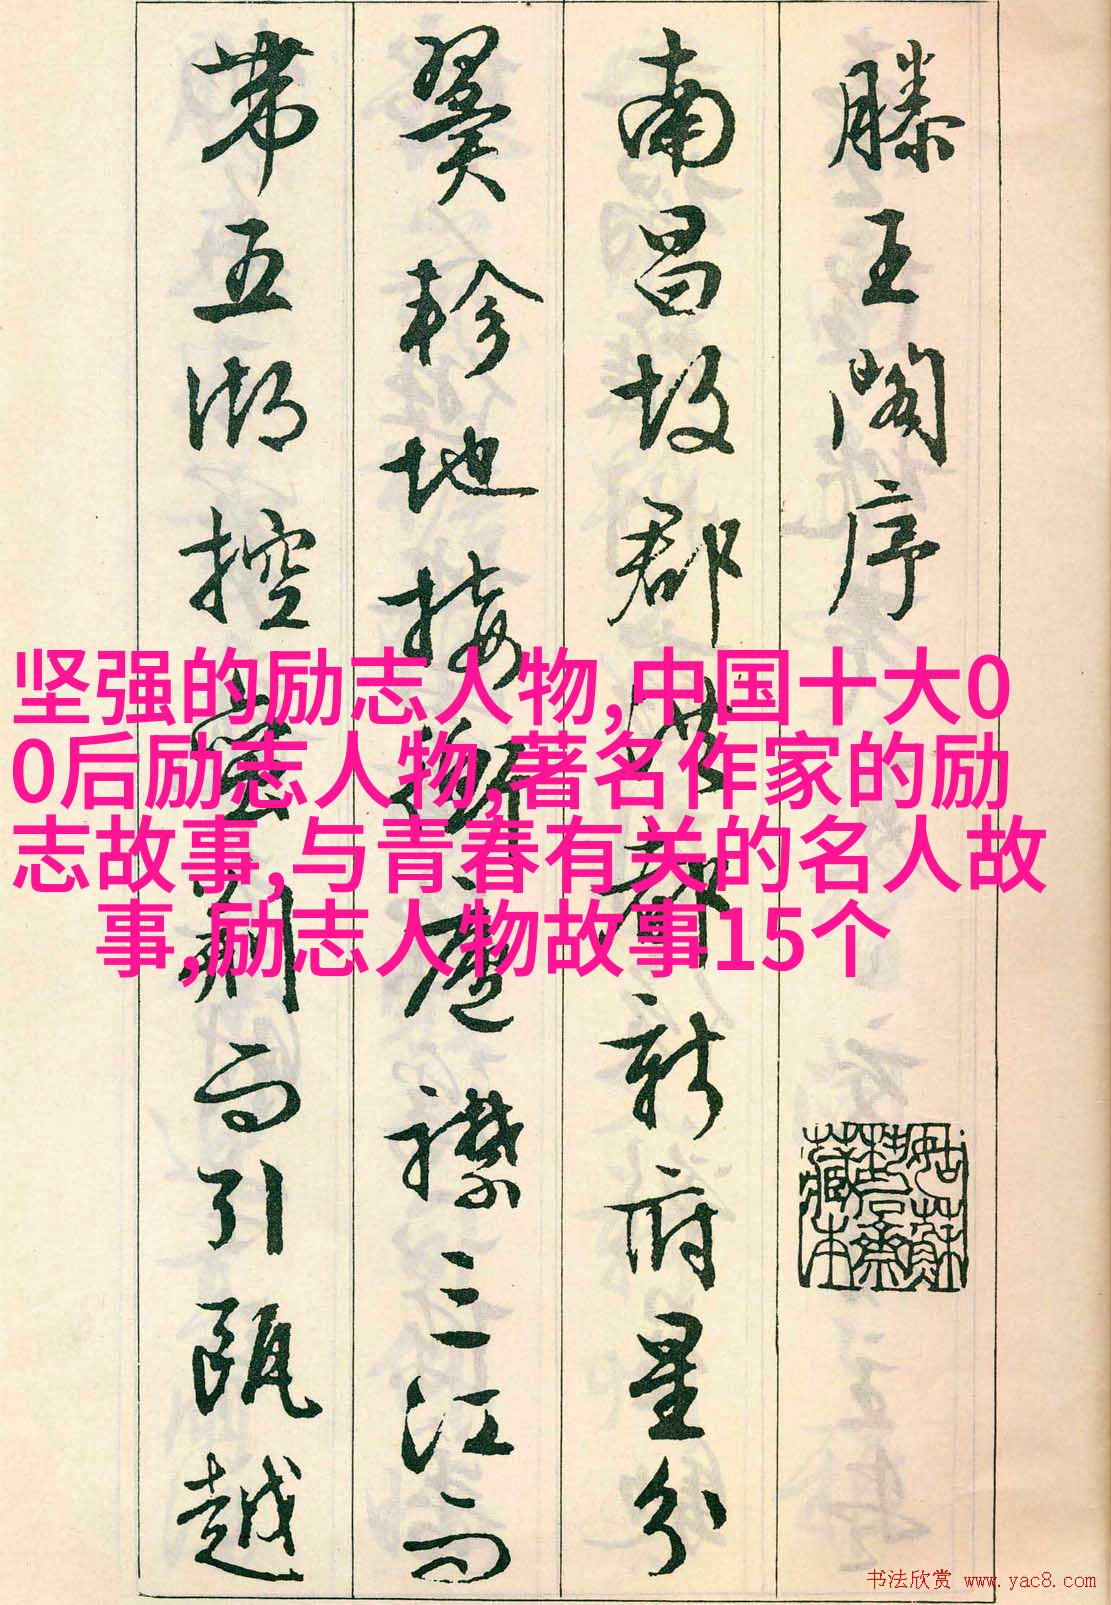 滕王閣序
南昌故郡洪都新府星分
翼軫地接衡廬襟三江而
帶五湖控蠻荊而引甌越
坚强的励志人物,中国十大0
0后励志人物,著名作家的励
志故事,与青春有关的名人故
事,励志人物故事15个
书法欣赏 www.yac8.com